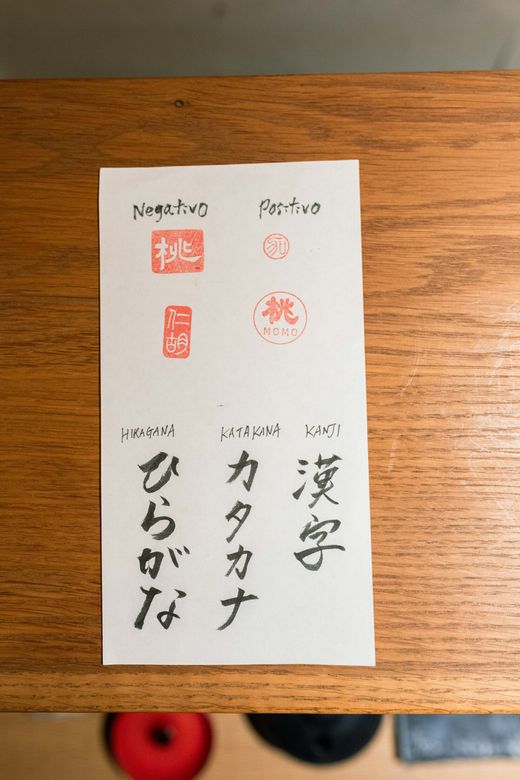 Negativo
Positivo
桃
仁胡
桃
MOMO
HIRAGANA
KATAKANA
KANJI
ひらがな
カタカナ
漢字